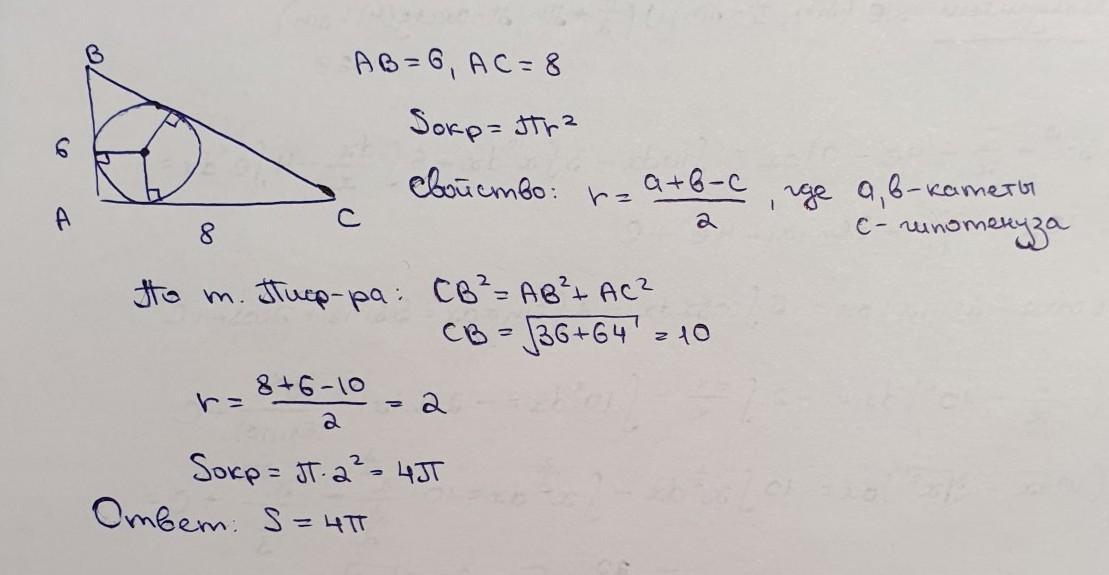 B
AB = 6, AC = 8
Sокр = πr²
6
Свойство: r = (a+b-c)/2, где a,b-катеты
c- гипотенуза
A
8
C
По т. Пиф-ра: CB² = AB² + AC²
CB = √(36+64) = 10
r = (8+6-10)/2 = 2
Sокр = π·2² = 4π
Ответ: S = 4π